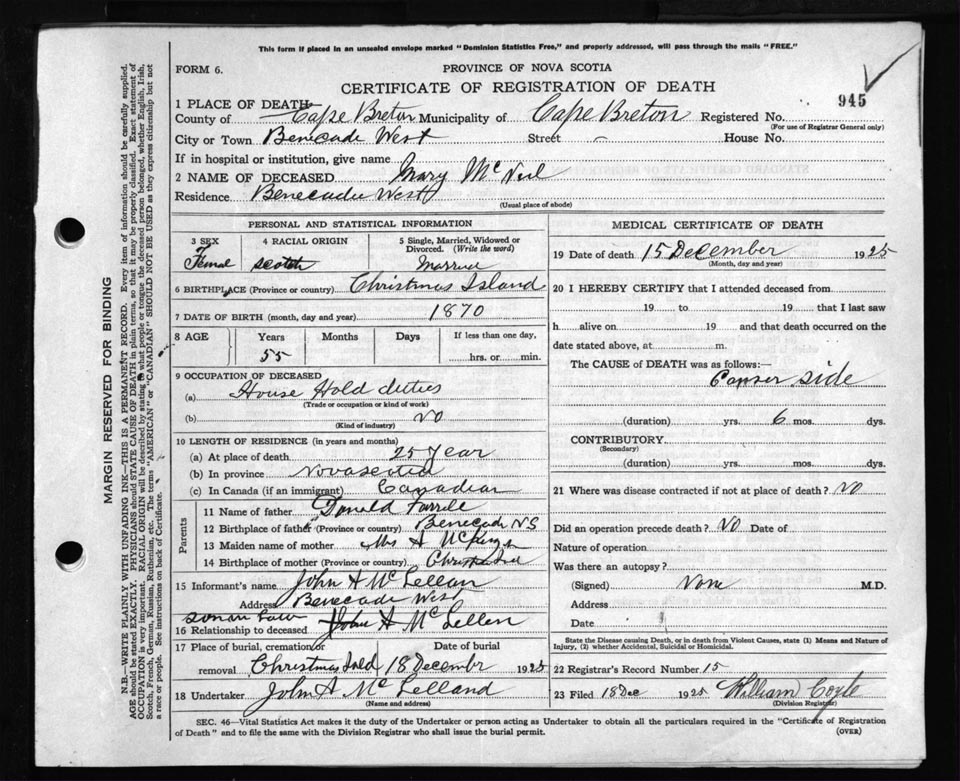 This form if placed in an unsealed envelope marked "Dominion Statistics Free," and properly addressed, will pass through the mails "FREE."
FORM 6.
PROVINCE OF NOVA SCOTIA
945
CERTIFICATE OF REGISTRATION OF DEATH
1 PLACE OF DEATH
County of Cape Breton Municipality of Cape Breton Registered No.
(For use of Registrar General only)
City or Town Benecade West Street – House No.
If in hospital or institution, give name
2 NAME OF DECEASED Mary McNeil
Residence Benecadie West
(Usual place of abode)
PERSONAL AND STATISTICAL INFORMATION
3 SEX 4 RACIAL ORIGIN 5 Single, Married, Widowed or Divorced. (Write the word)
Femal scotch Married
6 BIRTHPLACE (Province or country) Christmas Island
7 DATE OF BIRTH (month, day and year) 1870
8 AGE Years Months Days If less than one day,
55 hrs. or min.
9 OCCUPATION OF DECEASED
(a) House Hold duties
(Trade or occupation or kind of work)
(b) NO
(Kind of industry)
10 LENGTH OF RESIDENCE (in years and months)
(a) At place of death 25 Year
(b) In province Novascotia
(c) In Canada (if an immigrant) Canadian
Parents
11 Name of father Donald
12 Birthplace of father (Province or country) Benecade NS
13 Maiden name of mother Mrs A
14 Birthplace of mother (Province or country)
15 Informant's name John A McLellan
Address Benecade West
son an Law
16 Relationship to deceased John A McLellen
17 Place of burial, cremation or Date of burial
removal Christmas Isld 18 Decembr 1925
18 Undertaker John A McLelland
(Name and address)
MEDICAL CERTIFICATE OF DEATH
19 Date of death 15 December 1925
(Month, day and year)
20 I HEREBY CERTIFY that I attended deceased from
19 to 19 that I last saw
h alive on 19 and that death occurred on the
date stated above, at m.
The CAUSE OF DEATH was as follows:—
side
(duration) yrs. 6 mos. dys.
CONTRIBUTORY
(Secondary)
(duration) yrs. mos. dys.
21 Where was disease contracted if not at place of death? NO
Did an operation precede death? NO Date of
Nature of operation
Was there an autopsy?
(Signed) None M.D.
Address
Date 19
State the Disease causing Death, or in death from Violent Causes, state (1) Means and Nature of
Injury, (2) whether Accidental, Suicidal or Homicidal.
22 Registrar's Record Number 15
23 Filed 18 Dec 1925 William Coyle
(Division Registrar)
SEC. 46—Vital Statistics Act makes it the duty of the Undertaker or person acting as Undertaker to obtain all the particulars required in the "Certificate of Registration
of Death" and to file the same with the Division Registrar who shall issue the burial permit.
(OVER)
MARGIN RESERVED FOR BINDING
N.B.—WRITE PLAINLY WITH UNFADING INK—THIS IS A PERMANENT RECORD. Every item of information should be carefully supplied.
AGE should be stated EXACTLY. PHYSICIANS should STATE CAUSE OF DEATH in plain terms, so that it may be properly classified. Exact statement of
OCCUPATION is very important. RACIAL ORIGIN will be described by stating to what people or tongue the deceased person belonged, whether English, Irish,
Scotch, French, German, Russian, Ruthenian, etc. The terms "AMERICAN" or "CANADIAN" SHOULD NOT BE USED as they express citizenship but not
a race or people. See instructions on back of Certificate.